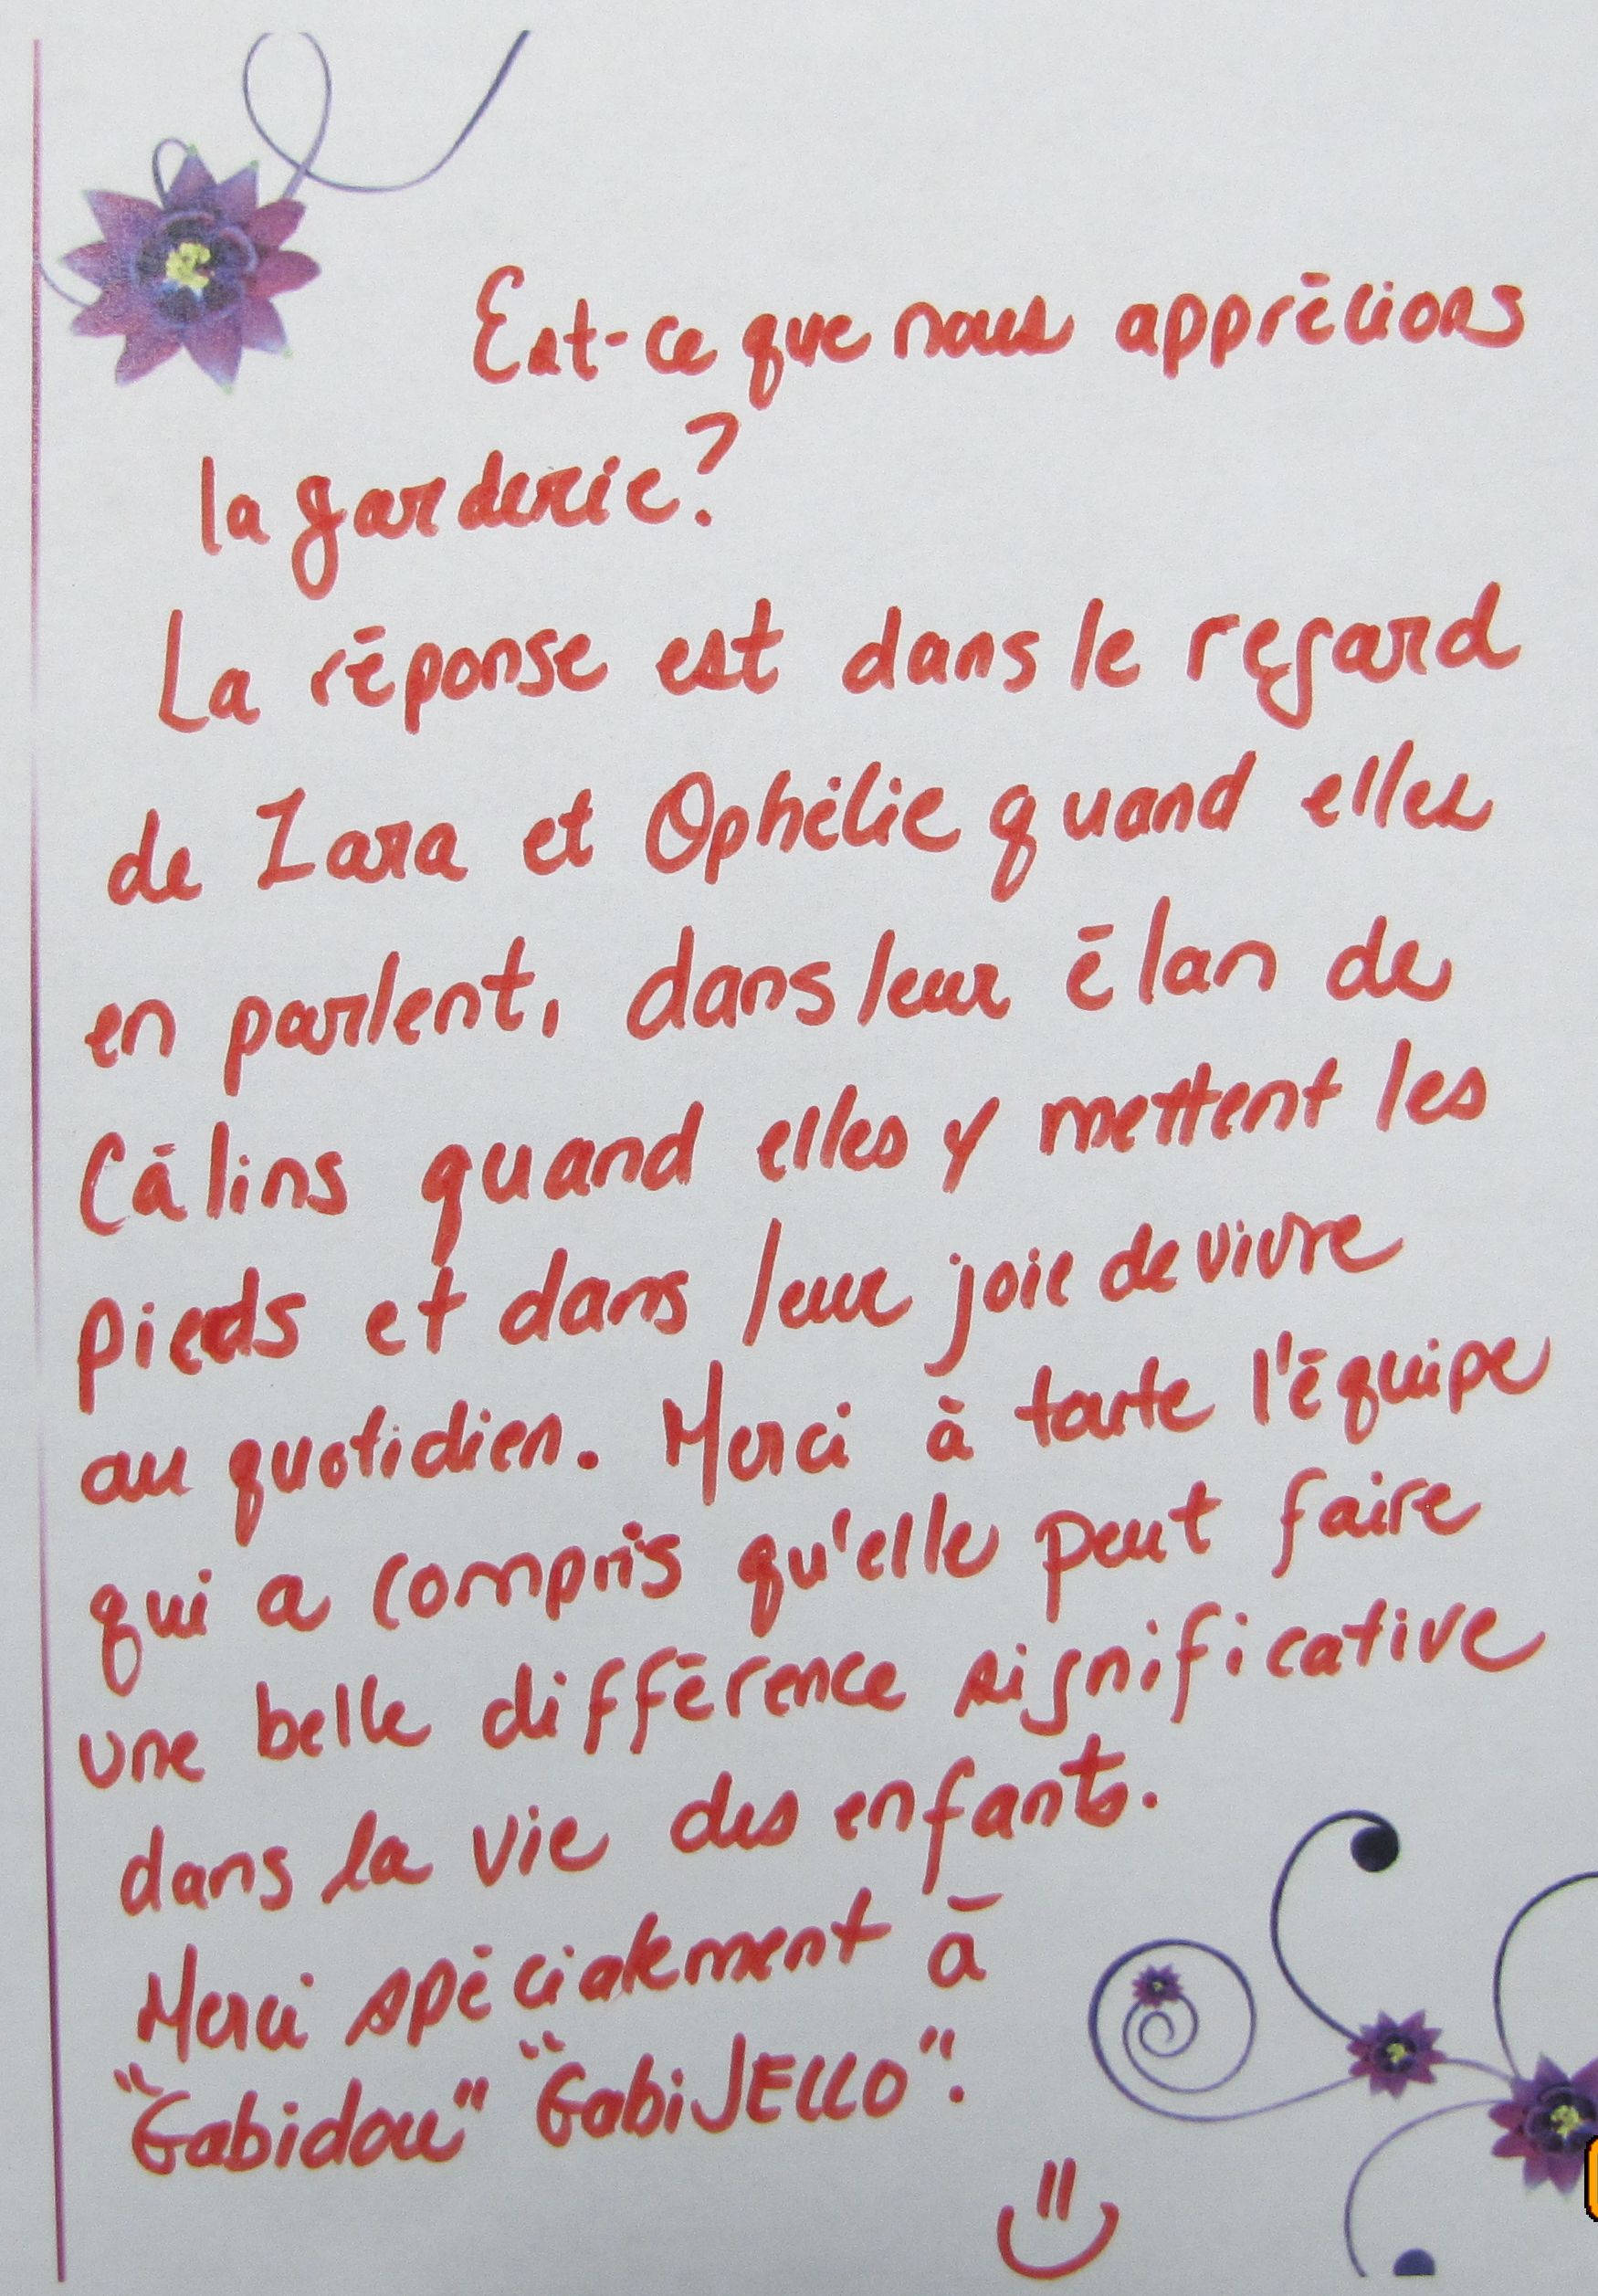 Est-ce que nous apprécions
la garderie?
La réponse est dans le regard
de Zara et Ophélie quand elles
en parlent, dans leur élan de
câlins quand elles y mettent les
pieds et dans leur joie de vivre
au quotidien. Merci à toute l'équipe
qui a compris qu'elle peut faire
une belle différence significative
dans la vie des enfants.
Merci spécialement à
"Gabidou" "GabiJELLO".